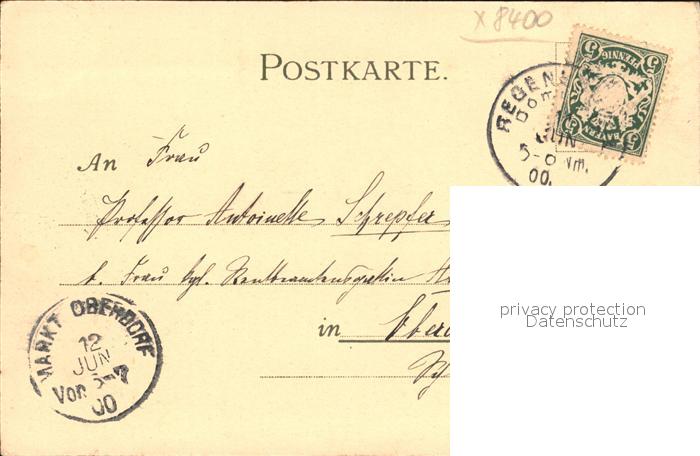 x 8400
POSTKARTE.
REGENS
Dom
JUN
5-6 Nm.
00.
5 PFENNIG 5
5 BAYERN 5
An Frau
Professor Antoinette Schrepfer
b. Frau kgl. Rentbeamtensgattin
in Obero
MARKT OBERDORF
12
JUN
Vor. 6-7
00
privacy protection
Datenschutz